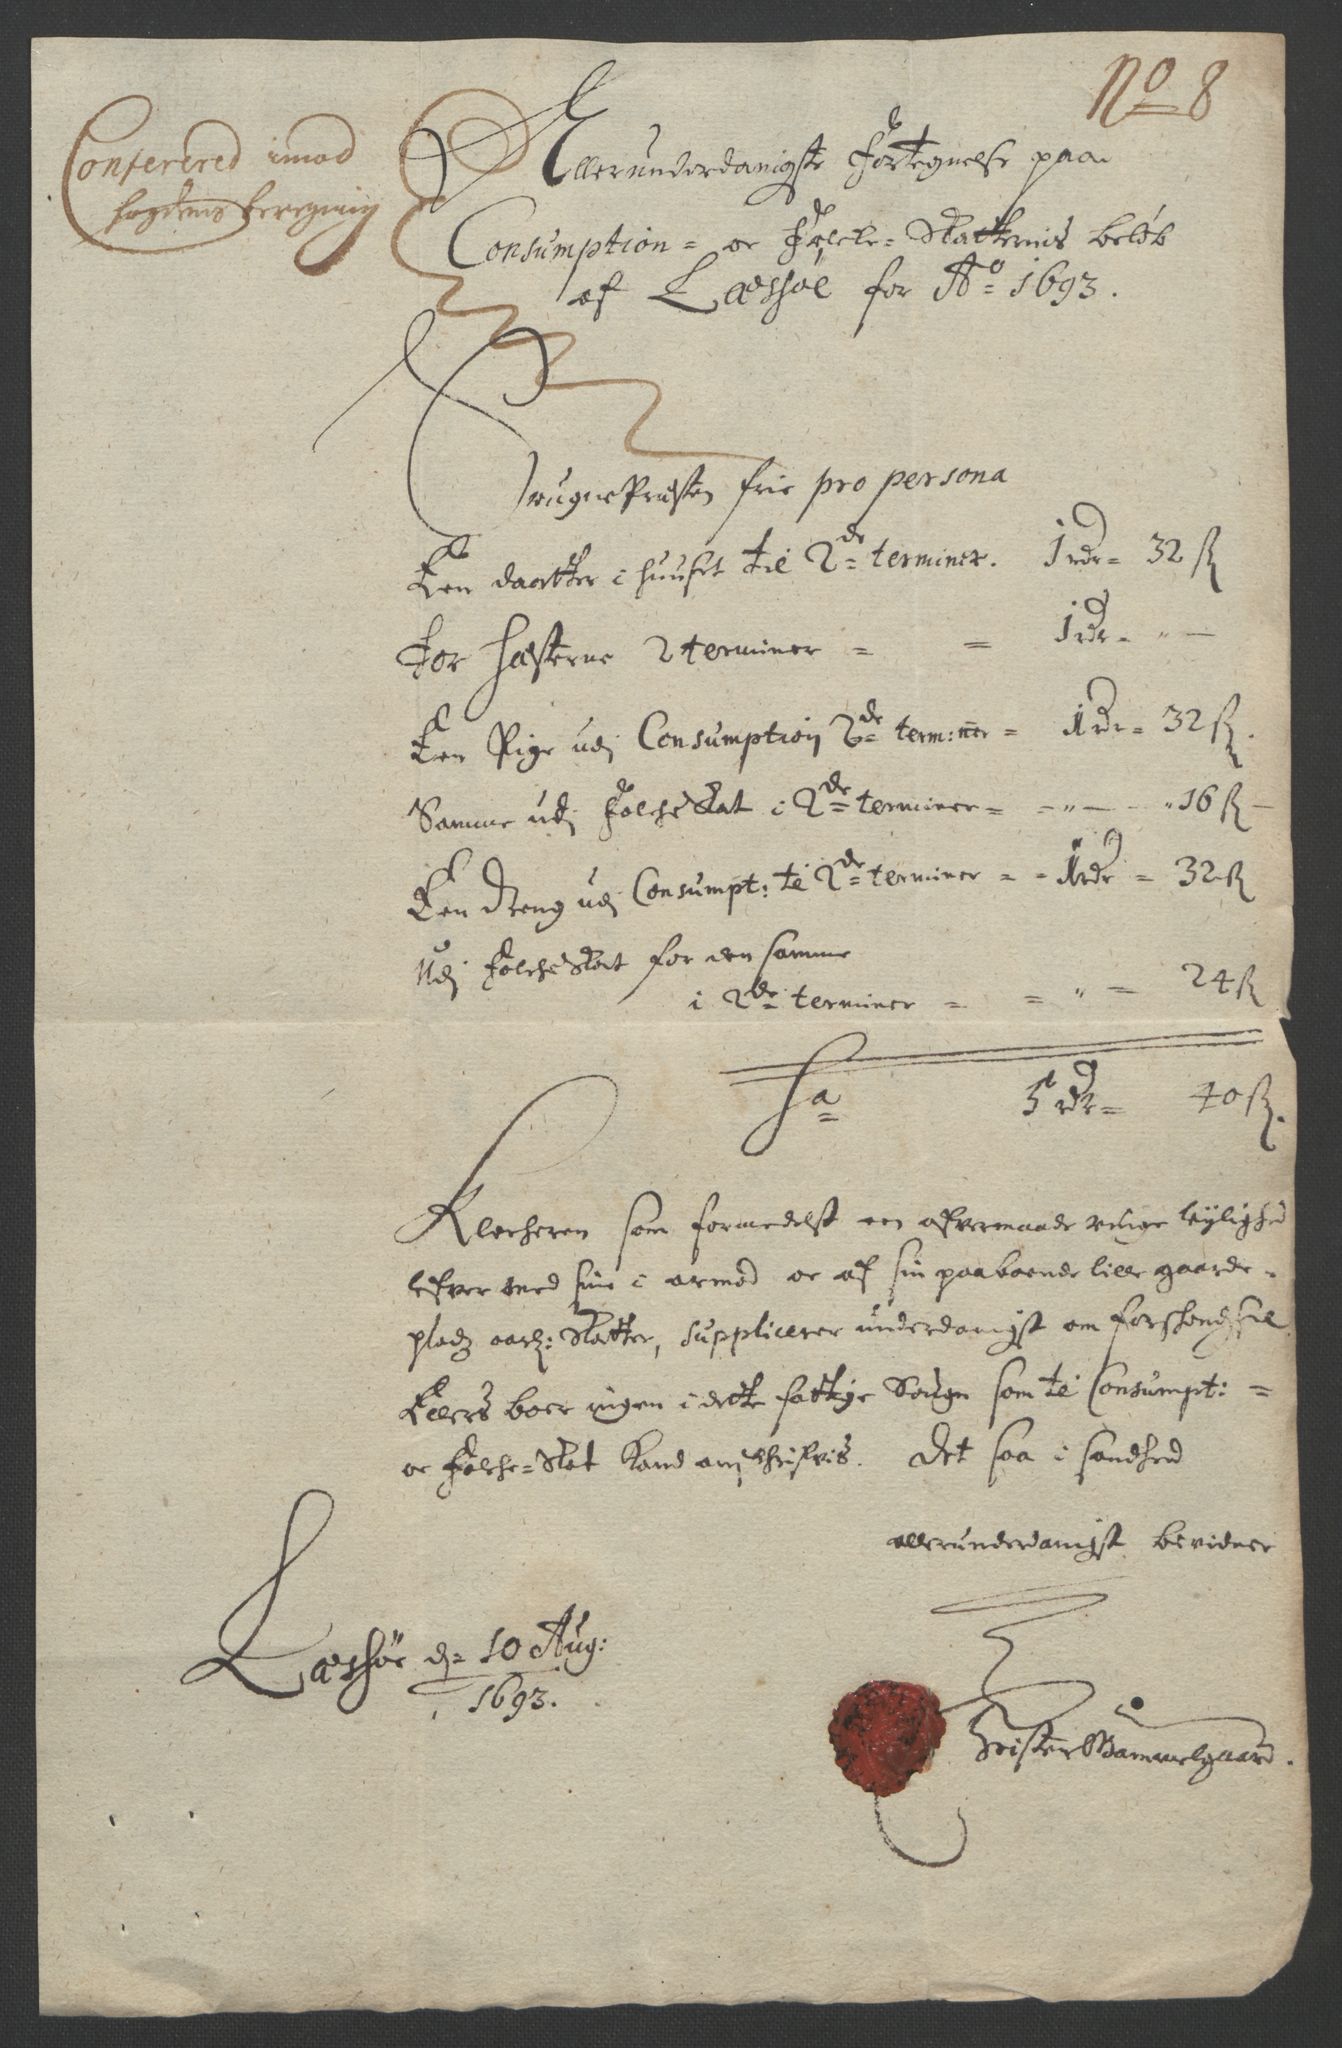 No 8
Conferered imod
fogdens beregning
Allerunderdanigste Fortegnelse paa
Consumption = oc Folche = Skatternis beløb
af Læssøe for Ao 1693.
Sougne Præsten frie pro persona
Een daatter i huuset til 2de terminer. 1 rdr = 32 ß
For Hæsterne 2 terminer = = 1 rdr - " —
Een Pige udj Consumption 2de term:ner = 1 rdr = 32 ß.
Samme udj Folche Skat i 2de terminer = - " — " 16 ß —
Een dreng udj Consumpt: til 2de terminer = - 1 rdr = 32 ß
Udj Folche Skat for den samme
i 2de terminer = = " = 24 ß
Sa 5 rdr = 40 ß.
Klocheren som formedelst en ringe leylighed
lefver med sine i armod oc af sin paaboende lille gaarde =
pladz aarl: Skatter, supplicerer underdanigst om forskaansel
Ellers boer ingen i dette fattige Sougn som til Consumpt: =
oc Folche = Skat kand anschrifvis. Det saa i sandhed
allerunderdanigst bevidner
Læssøe d = 10 Aug:
1693.